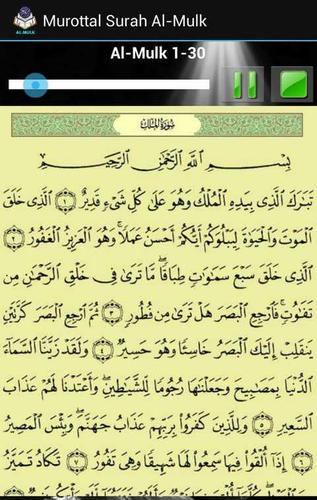 Murottal Surah Al-Mulk
AL-MULK
Al-Mulk 1-30
سُورَةُ الْمُلْكِ
بِسْمِ اللَّهِ الرَّحْمَٰنِ الرَّحِيمِ
تَبَارَكَ الَّذِي بِيَدِهِ الْمُلْكُ وَهُوَ عَلَىٰ كُلِّ شَيْءٍ قَدِيرٌ ١ الَّذِي خَلَقَ
الْمَوْتَ وَالْحَيَاةَ لِيَبْلُوَكُمْ أَيُّكُمْ أَحْسَنُ عَمَلًا ۚ وَهُوَ الْعَزِيزُ الْغَفُورُ ٢
الَّذِي خَلَقَ سَبْعَ سَمَاوَاتٍ طِبَاقًا ۖ مَّا تَرَىٰ فِي خَلْقِ الرَّحْمَٰنِ مِن
تَفَاوُتٍ ۖ فَارْجِعِ الْبَصَرَ هَلْ تَرَىٰ مِن فُطُورٍ ٣ ثُمَّ ارْجِعِ الْبَصَرَ كَرَّتَيْنِ
يَنقَلِبْ إِلَيْكَ الْبَصَرُ خَاسِئًا وَهُوَ حَسِيرٌ ٤ وَلَقَدْ زَيَّنَّا السَّمَاءَ
الدُّنْيَا بِمَصَابِيحَ وَجَعَلْنَاهَا رُجُومًا لِّلشَّيَاطِينِ ۖ وَأَعْتَدْنَا لَهُمْ عَذَابَ
السَّعِيرِ ٥ وَلِلَّذِينَ كَفَرُوا بِرَبِّهِمْ عَذَابُ جَهَنَّمَ ۖ وَبِئْسَ الْمَصِيرُ
٦ إِذَا أُلْقُوا فِيهَا سَمِعُوا لَهَا شَهِيقًا وَهِيَ تَفُورُ ٧ تَكَادُ تَمَيَّزُ